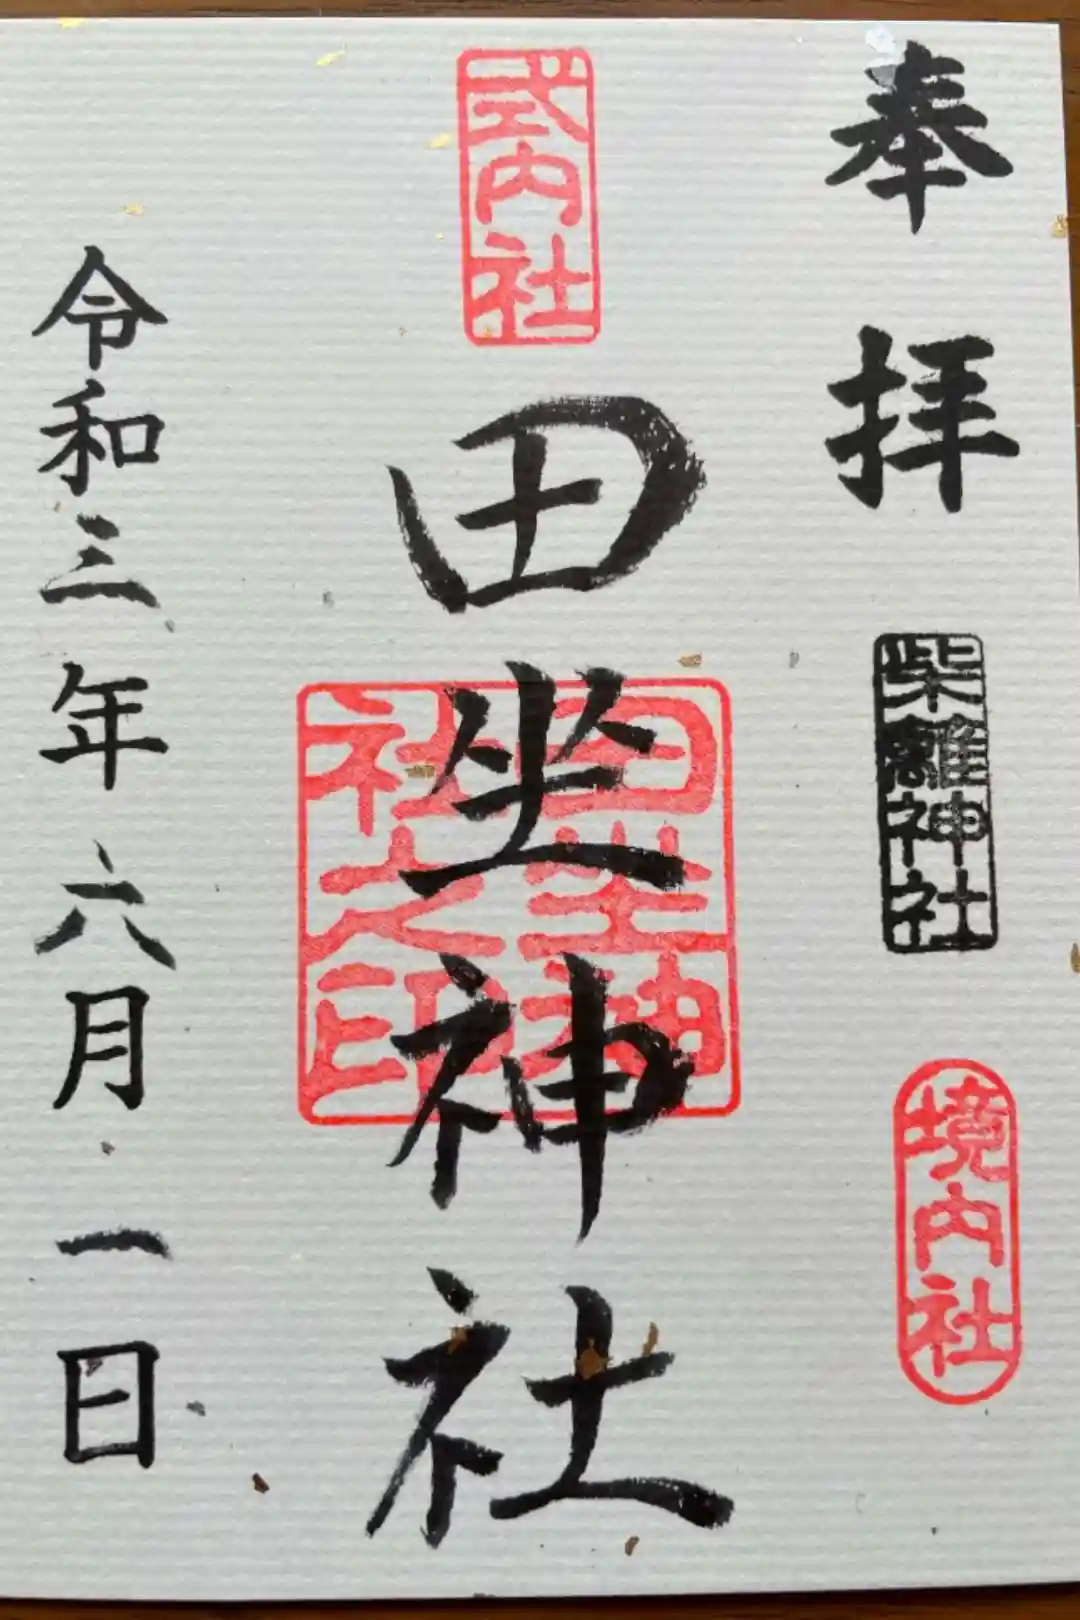 奉拝
柴籬神社
境内社
式内社
田坐神社
田坐神社之印
令和三年六月一日